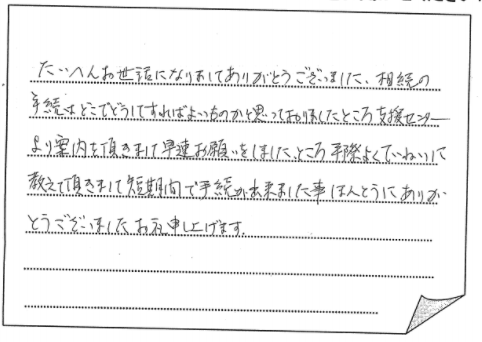 たいへんお世話になりましてありがとうございました、相続の
手続はどこでどうしてすればよいものかと思っておりましたところ支援センター
より案内を頂きまして早速お願いをしました、ところ手際よくていねいに
教えて頂きまして短期間で手続が出来ました事ほんとうにありが
とうございましたお礼申し上げます。